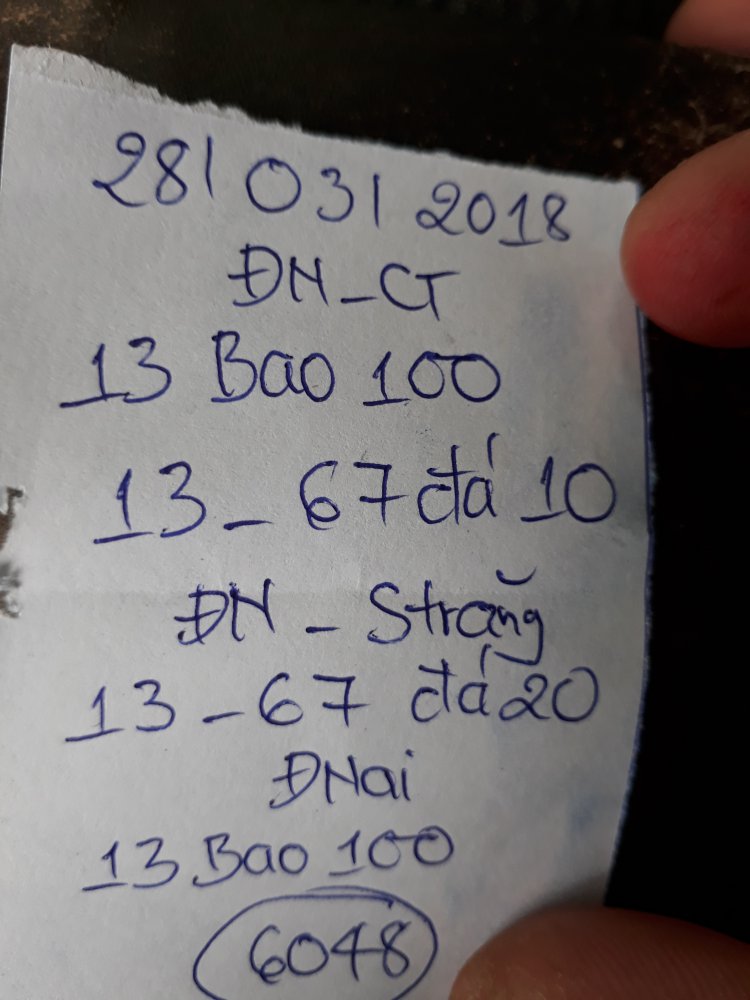 28/03/2018
ĐN-CT
13 Bao 100
13-67 đá 10
ĐN-Străng
13-67 đá 20
ĐNai
13 Bao 100
6048